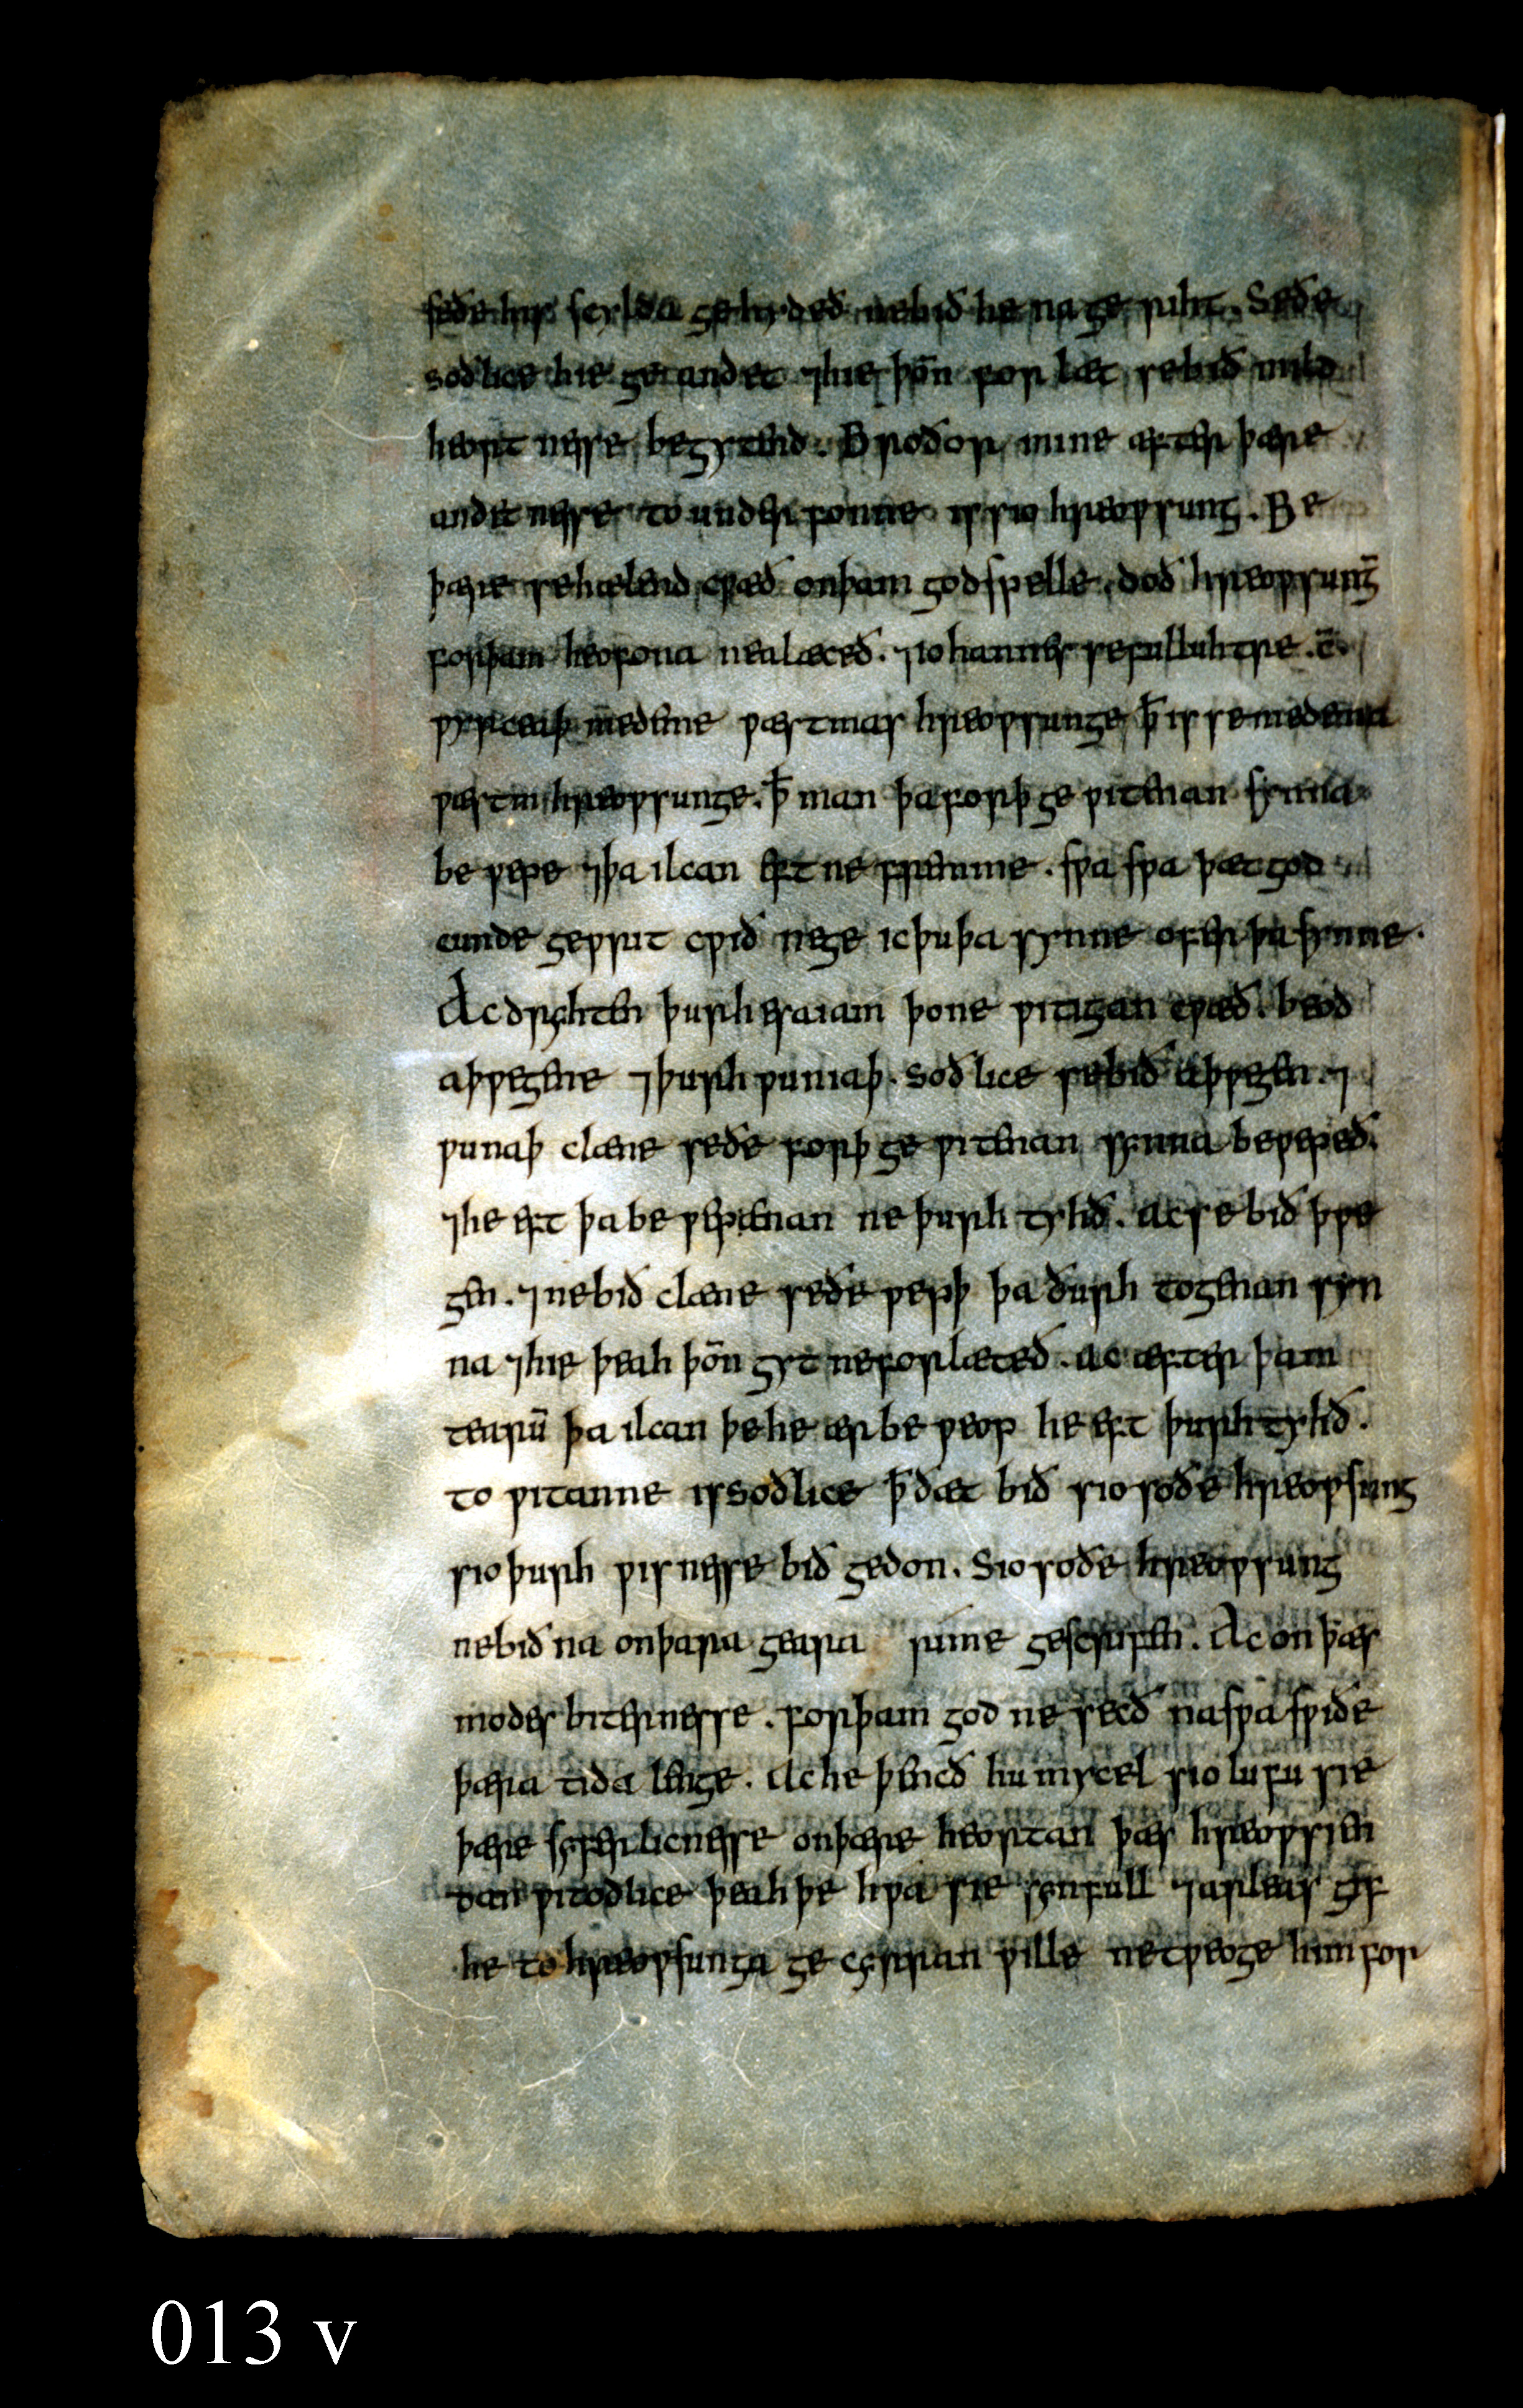 seðe his scylda gehydeð nebið he na geriht. Seðe
soðlice hie geandet ⁊hie þoñ forlæt sebið mild
heort nesse begytend. Broðor mine æfter þære
andetnesse to underfonne is sio hreoƿsung. Be
þære sehælend cƿæð onþam godspelle. doð hreoƿsung̃
forþam heofona nealæceð. ⁊iohannes sefulluhtre. c̄.
ƿyrceaþ medeme ƿæstmas hreoƿsunge ꝥ is se medema
ƿæstm hreoƿsunge. ꝥ man þa forþ geƿitenan synna
be ƿepe ⁊þa ilcan eft ne fremme. sƿa sƿa þæt god
cunde geƿrit cƿið nege icþuþa synne ofer þa synne.
Ac drihten þurh esaiam þone ƿitigan cƿæð. beoð
aþƿegene ⁊þurh ƿuniaþ. soðlice sebið aþƿegen. ⁊
ƿunaþ clæne seðe forþ geƿitenan synna beƿepeð.
⁊he eft þa be ƿepenan ne þurh tyhð. ac se bið þƿe
gen. ⁊nebið clæne seðe ƿepþ þa ðurh togenan syn
na ⁊hie þeah þoñ gyt neforlæteð. ac æfter þam
tearū þa ilcan þehe ær be ƿeop he eft þurhtyhð.
to ƿitanne is soðlice ꝥ ðæt bið sio soðe hreoƿsung
sio þurh ƿisnesse bið gedon. Sio soðe hreoƿsung
nebið na onþara geara rime gescrifen. Ac on þæs
modes biternesse. forþam god ne secð nasƿa sƿiðe
þara tida lenge. Ac he þencð hu mycel sio lufu sie
þære syferlicnesse onþære heortan þæs hreoƿsien
dan ƿitodlice þeah þe hƿa sie synfull ⁊arleas gif
he to hreoƿsunga gecyrran ƿille ne tƿeoge him for